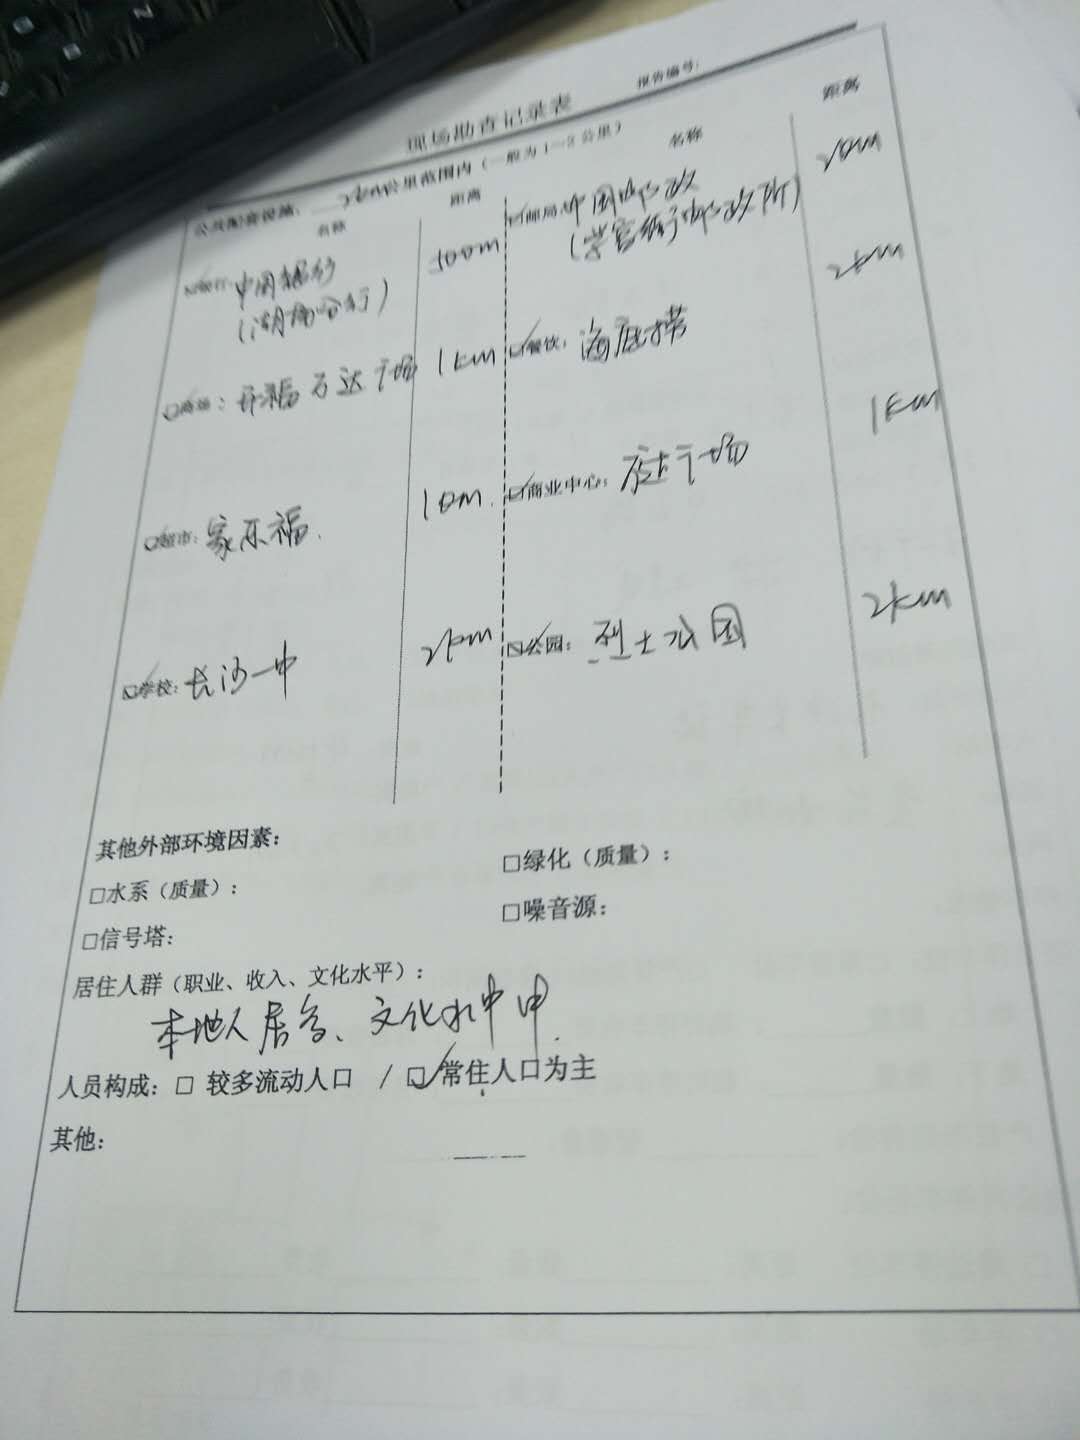 报告编号:
现场勘查记录表
公共配套设施: 2km公里范围内(一般为1-2公里)
名称 距离 名称 距离
☑银行: 中国银行 500m ☑邮局: 中国邮政 20m
(湖南分行) (学宫街邮政所)
☑商场: 开福万达广场 1km ☑餐饮: 海底捞 2km
☑超市: 家乐福. 10m. ☑商业中心: 广场 1km
☑学校: 长沙一中 2km ☑公园: 烈士公园 2km
其他外部环境因素:
□水系(质量): □绿化(质量):
□信号塔: □噪音源:
居住人群(职业、收入、文化水平):
本地人居多、文化水中中.
人员构成: □ 较多流动人口 / ☑常住人口为主
其他: